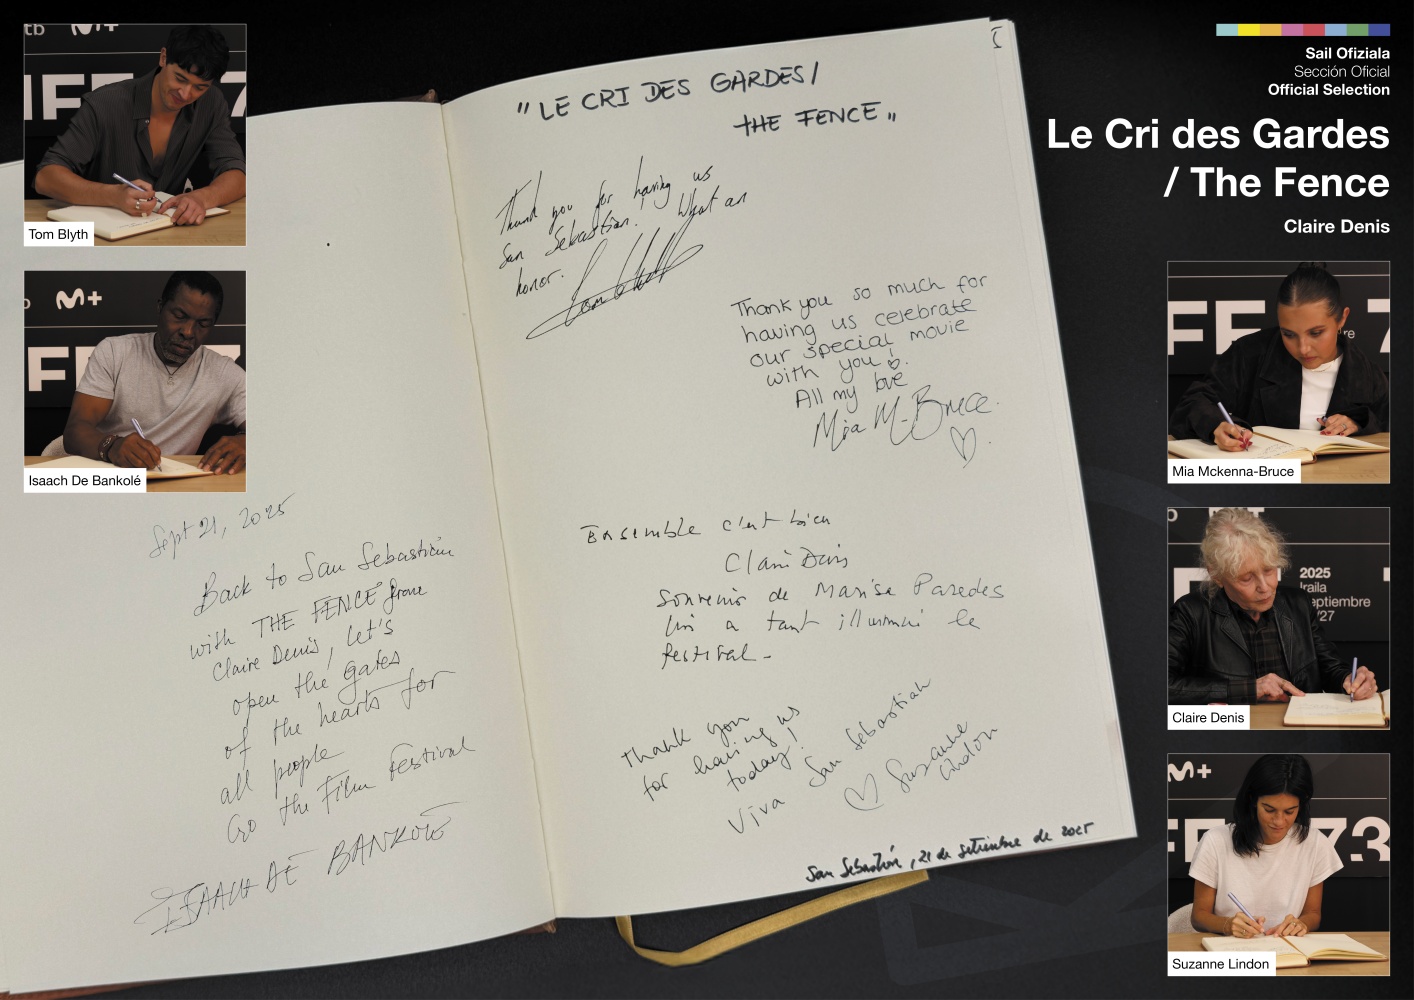 tb M+
IFF 7
Tom Blyth
M+
FF 73
Isaach De Bankolé
Sept 21, 2025
Back to San Sebastián
with THE FENCE from
Claire Denis, let's
open the gates
of the hearts for
all people
Go the Film Festival
ISAACH DE BANKOLÉ
"LE CRI DES GARDES/
THE FENCE"
Thank you for having us
San Sebastian! What an
honor.
Tom Blyth
Thank you so much for
having us celebrate
our special movie
with you!
All my love
Mia M-Bruce.
Ensemble c'est bien
Claire Denis
Souvenir de Marisa Paredes
qui a tant illuminé le
festival-
Thank you
for having us
today!
Viva San Sebastian
Suzanne
Lindon
San Sebastián, 21 de setiembre de 2025
Sail Ofiziala
Sección Oficial
Official Selection
Le Cri des Gardes
/ The Fence
Claire Denis
FF 7
re
Mia Mckenna-Bruce
2025
Iraila
eptiembre
/27
Claire Denis
M+
FF 73
Suzanne Lindon